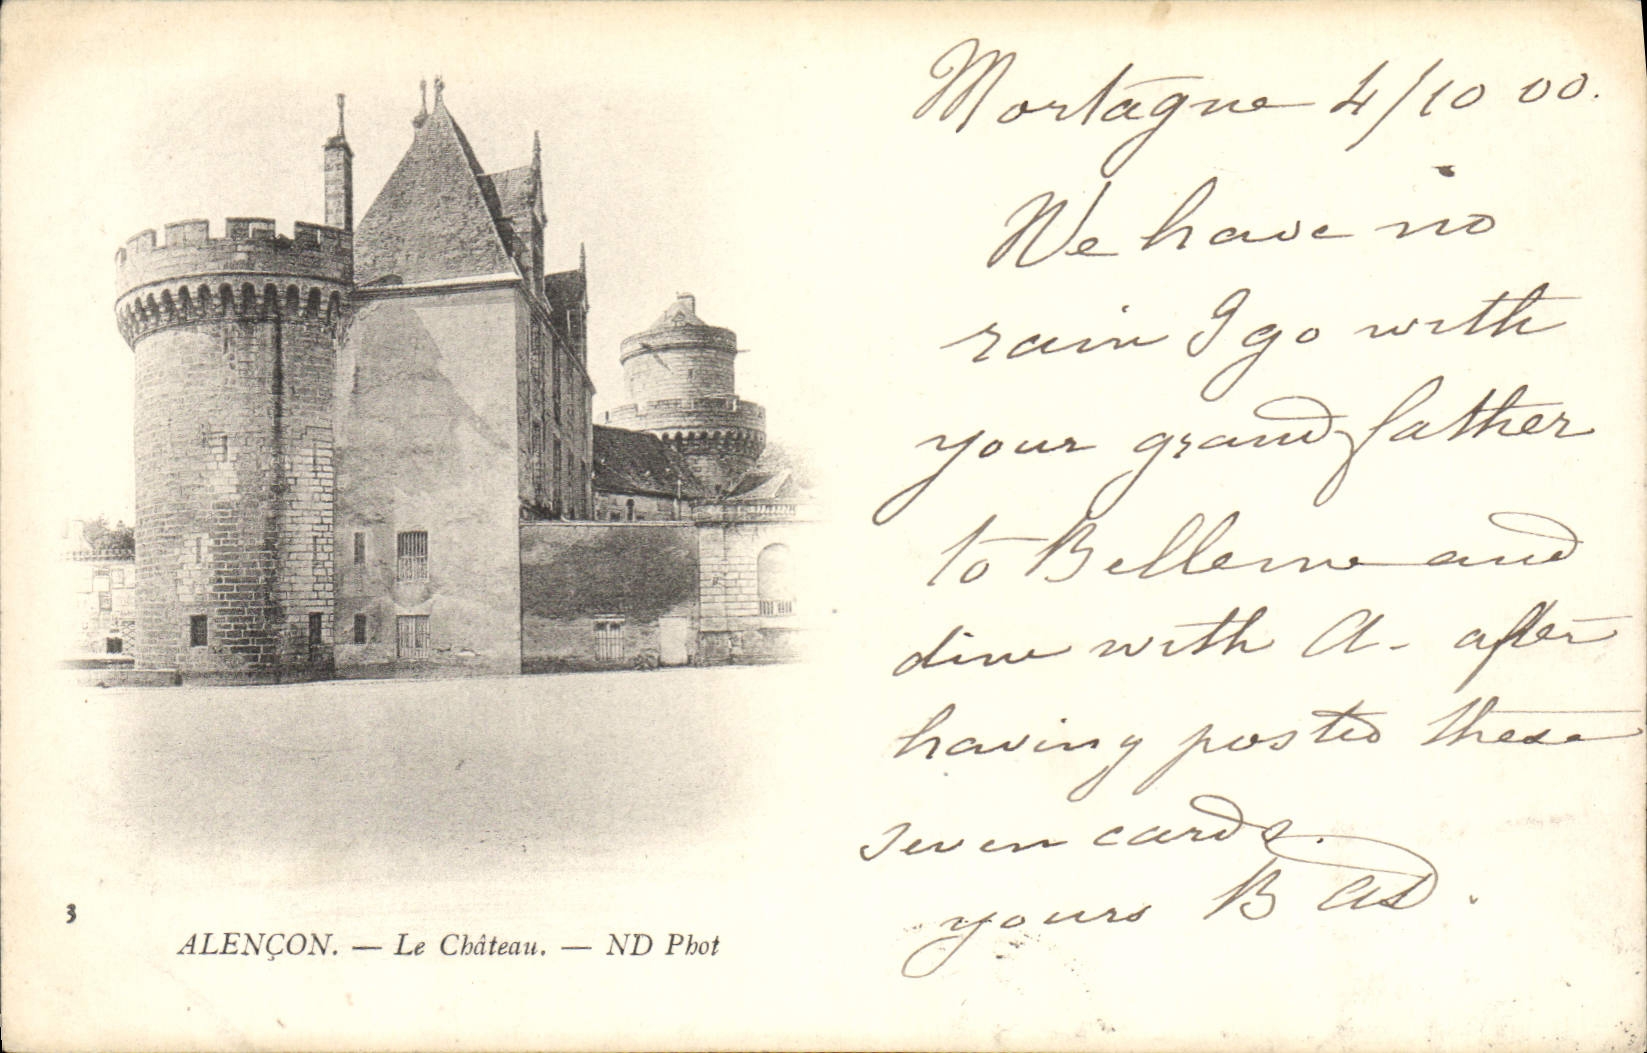 Mortagne 4/10 00.
We have no
rain I go with
your grandfather
to Bellême and
dine with A - after
having posted these
seven cards.
yours B
3
ALENÇON. — Le Château. — ND Phot